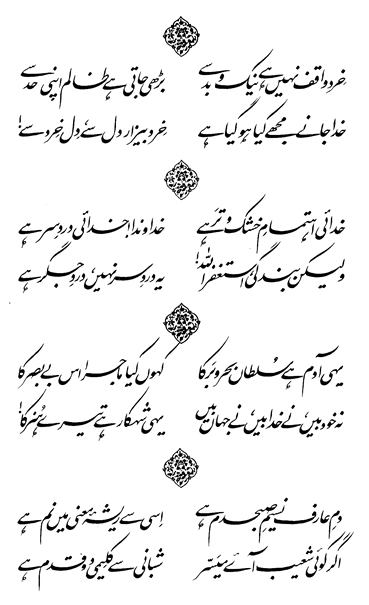 خرد واقف نہیں ہے نیک و بد سے بڑھی جاتی ہے ظالم اپنی حد سے
خدا جانے مجھے کیا ہو گیا ہے خرد بیزار دل سے، دل خرد سے!
خدائی اہتمامِ خشک و تر ہے خداوندا! خدائی دردِ سر ہے
ولیکن بندگی، استغفراللہ! یہ دردِ سر نہیں، دردِ جگر ہے
یہی آدم ہے سلطاں بحر و بر کا کہوں کیا ماجرا اس بے بصر کا
نہ خود بیں، نے خدا بیں، نے جہاں بیں یہی شہکار ہے تیرے ہنر کا!
دمِ عارف نسیمِ صبحدم ہے اسی سے ریشۂ معنی میں نم ہے
اگر کوئی شعیب آئے میسر شبانی سے کلیمی دو قدم ہے